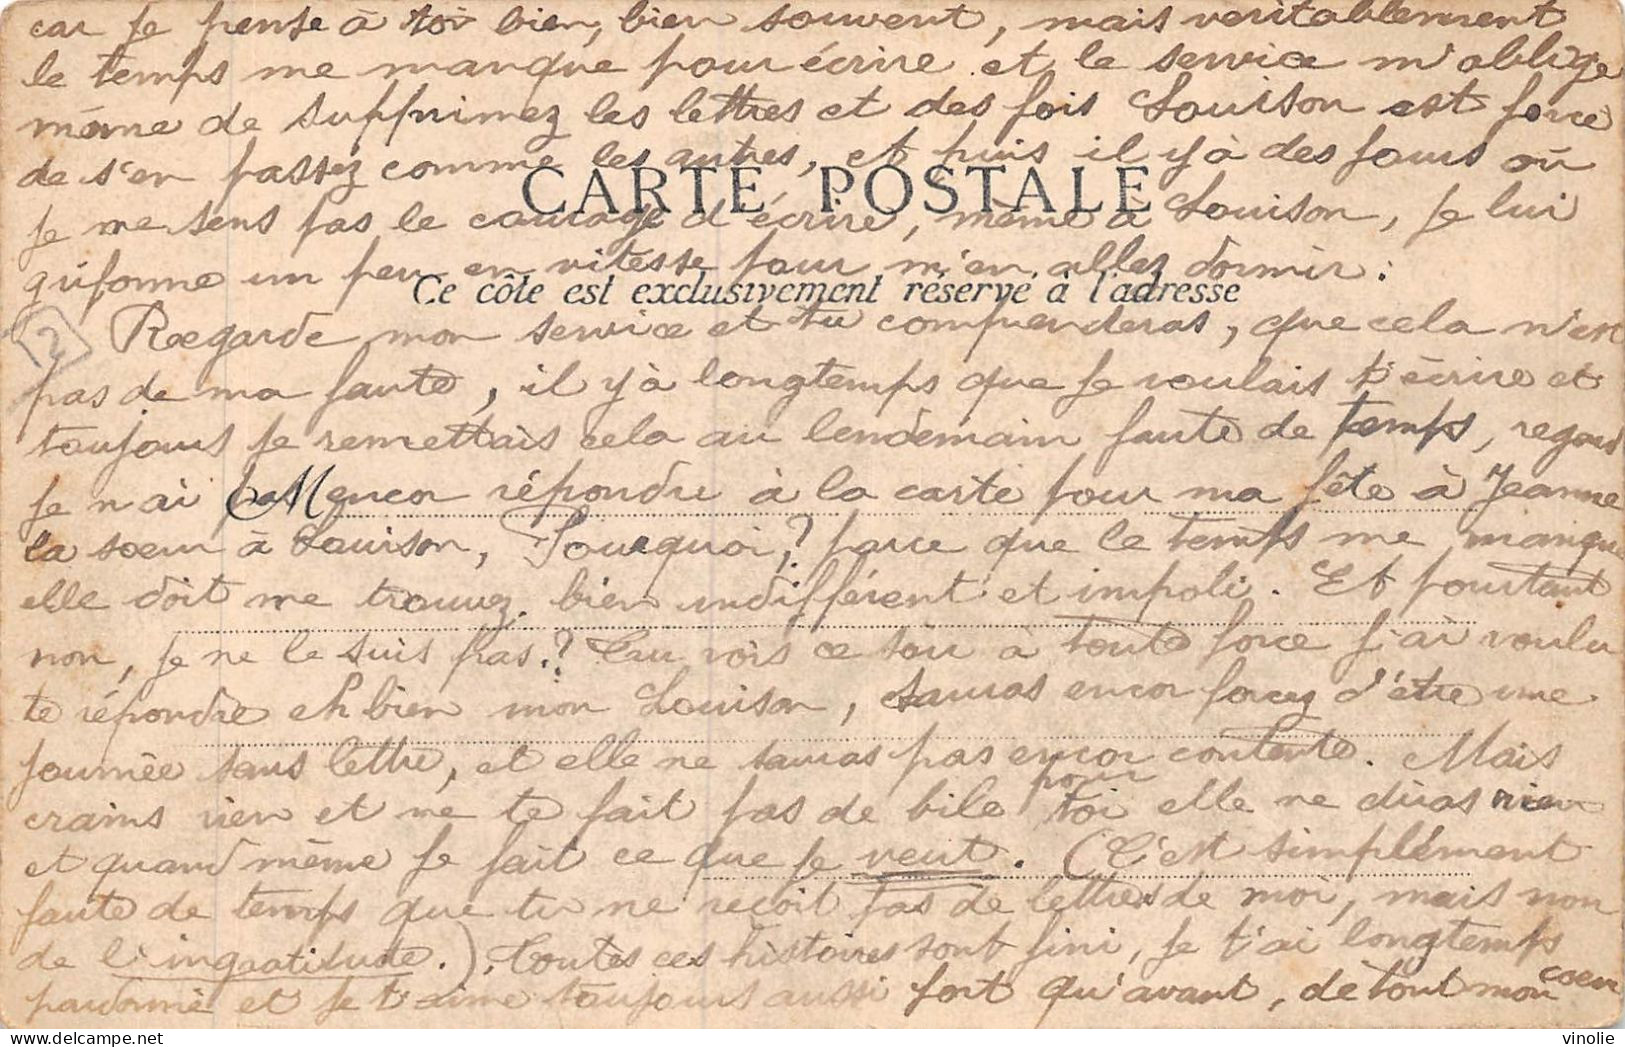 car je pense à toi bien, bien souvent, mais veritablement
le temps me manque pour écrire et le service m'oblige
même de supprimez les lettres et des fois Louison est force
de s'en passez comme les autres, et puis il y à des jours où
CARTE POSTALE
je me sens pas le courage d'écrire, même à Louison, je lui
grifonne un peu en vitesse pour m'en allez dormir.
Ce côté est exclusivement réservé à l'adresse
2
Regarde mon service et tu comprenderas, que cela n'est
pas de ma faute, il y à longtemps que je voulais t'écrire et
toujours je remettais cela au lendemain faute de temps, regard
je n'ai pas encor répondu à la carte pour ma fête à Jeanne
M
la soeur à Louison, Pourquoi? parce que le temps me manque
elle doit me trouvez bien indifférent et impoli. Et pourtant
non, je ne le suis pas.? Tu vois ce soir à toute force j'ai voulu
te répondre eh bien mon Louison, sauras encor forcez d'être une
journée sans lettre, et elle ne sauras pas encor contente. Mais
crains rien et ne te fait pas de bile pour toi elle ne diras rien
et quand même je fait ce que je veut. (C'est simplément
faute de temps que tu ne reçoit pas de lettres de moi, mais non
de l'ingratitude.). Toutes ces histoires sont fini, je t'ai longtemps
pardonné et je t'aime toujours aussi fort qu'avant, de tout mon coeur
vinolie